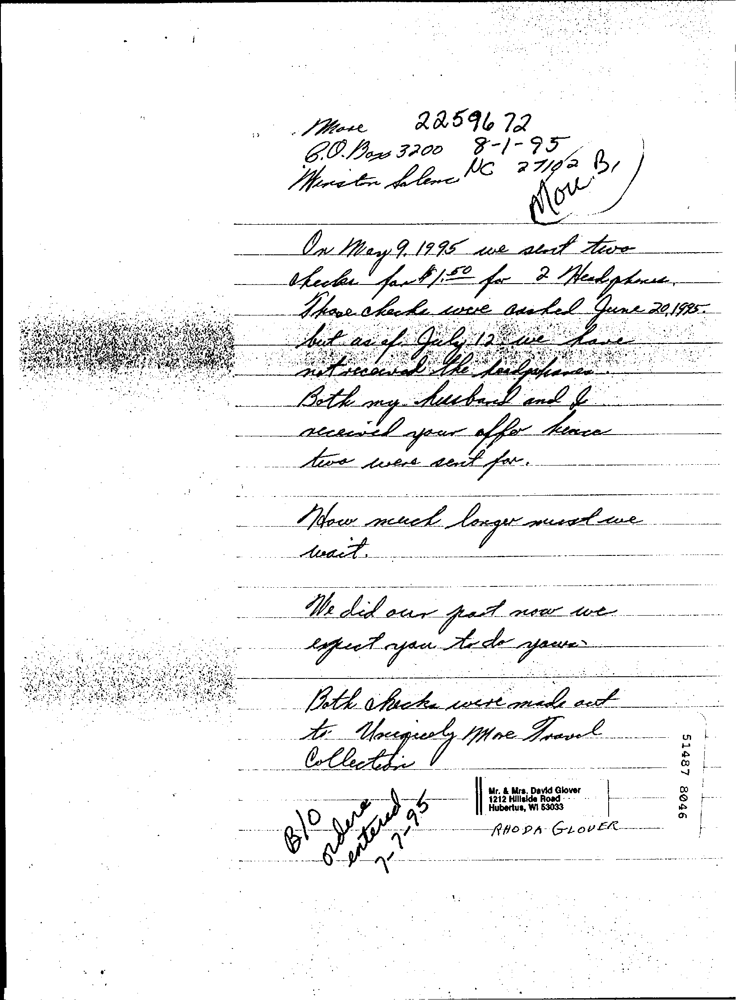 More 2259672
P.O. Box 3200 8-1-95
Winston Salem NC 27102
More B,
On May 9, 1995 we sent two
checks for $1.50 for 2 Headphones.
Those checks were cashed June 20, 1995.
but as of July 12 we have
not received the headphones.
Both my husband and I
received your offer hence
two were sent for.
How much longer must we
wait.
We did our part now we
expect you to do yours.
Both checks were made out
to Uniquely More Travel
Collection
51487 8046
Mr. & Mrs. David Glover
1212 Hillside Road
Hubertus, WI 53033
RHODA GLOVER
B/O
orders
entered
7-7-95